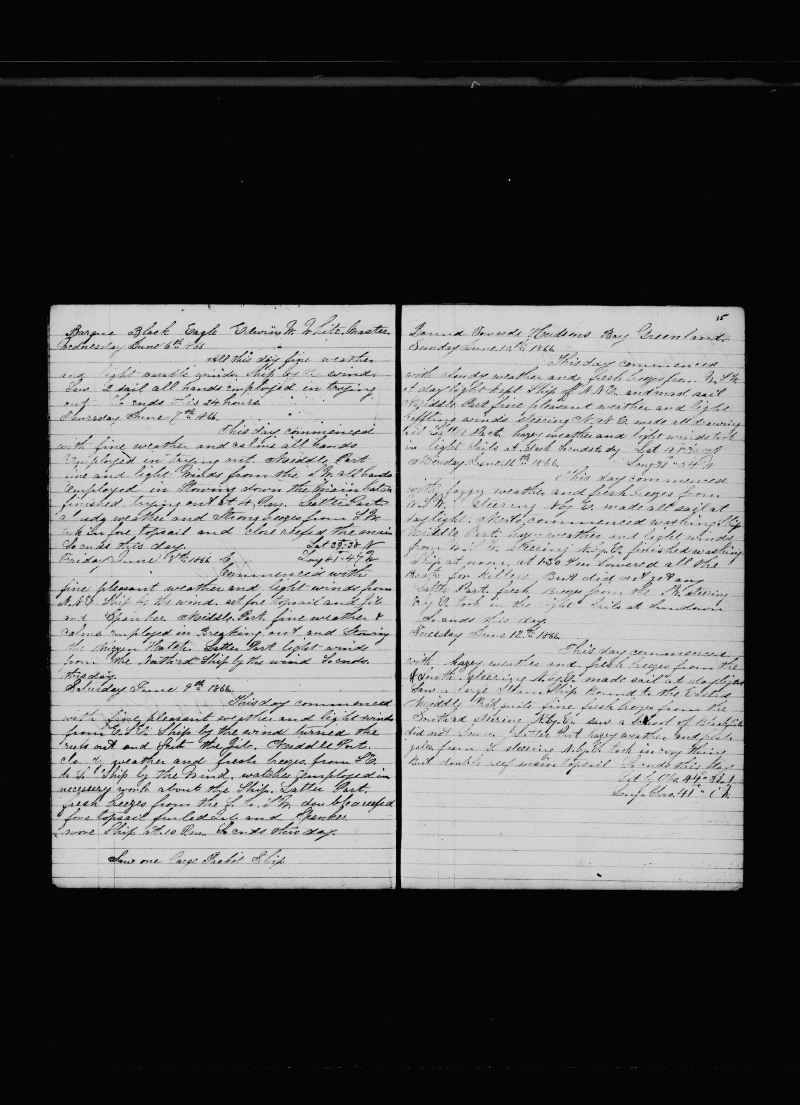 Barque Black Eagle Edwin W. White Master
Wednesday June 6th 1866
All this day fine weather
and light winds. Ship by the wind
Saw a sail all hands employed in trying
out So ends this 24 hours.
Thursday June 7th 1866.
This day commenced
with fine weather and calms all hands
Employed in trying out. Middle Part
fine and light Winds from the all hands
Employed in Stowing down the Main hatch
finished trying out at 4 P.m. Latter Part
weather and Strong breezes from S W
took in fore topsail and close reefed the main
So ends this day. Lat 39-38 N
Friday June 8th 1866 Long 41-47 W
Commenced with
fine pleasant weather and light winds from
N.N.E Ship by the wind. set fore topsail and jib
and Spanker Middle Part. fine weather &
calms Employed in Breaking out and Stowing
the Mizzen Hatch. Latter Part light winds
from the Northard Ship by the wind So ends
this day.
Saturday June 9th 1866
This day commenced
with fine pleasant weather and light winds
from Ship by the wind turned the
reefs out and Set the Jib. Middle Part.
weather and fresh breezes from S.E.
to S. Ship by the Wind. watches Employed in
necessary work about the Ship. Latter Part.
fresh breezes from the S. to S.W. double reefed
fore topsail furled and Spanker
wore Ship at 10 P.m. So ends this day
Saw one large Ship
15
Bound Towards Hudsons Bay Greenland
Sunday June 10th 1866
This day commenced
with cloudy weather and fresh breezes from W.S.W.
at day light kept Ship off N.N.E. and mad sail
Middle Part fine pleasant weather and light
winds Steering N.N.E. made all drawing
sail Latter Part. hazey weather and light winds took
in light Sails at dark So ends this day Lat 41-30
Monday June 11th 1866. Long
This day commenced
with foggy weather and fresh breezes from
W.S.W. Steering N by E. made all sail at
day light. Also commenced washing Ship
Middle Part. hazey weather and light winds
from Steering N.by.E. finished washing
Ship at noon. at 1-30 P m Lowered all the
Boats for Killers But did not get any
Latter Part. fresh Breezes from the Steering
N by E. took in the light Sails at Sundown
So ends this day
Tuesday June 12th 1866
This day commenced
with hazey weather and fresh breezes from the
South. Steering N.by.E. made sail at daylight
Saw a large Steam Ship bound to the Eastard
Middle Part quite fine fresh breezes from the
Southard Steering N.by.E. saw a School of Blackfish
did not Lower Latter Part hazey weather and fresh
gales from S. Steering N.by.E. took in evry thing
but double reef main topsail So ends this day
Lat by Obs 44"-31
Long. 41"